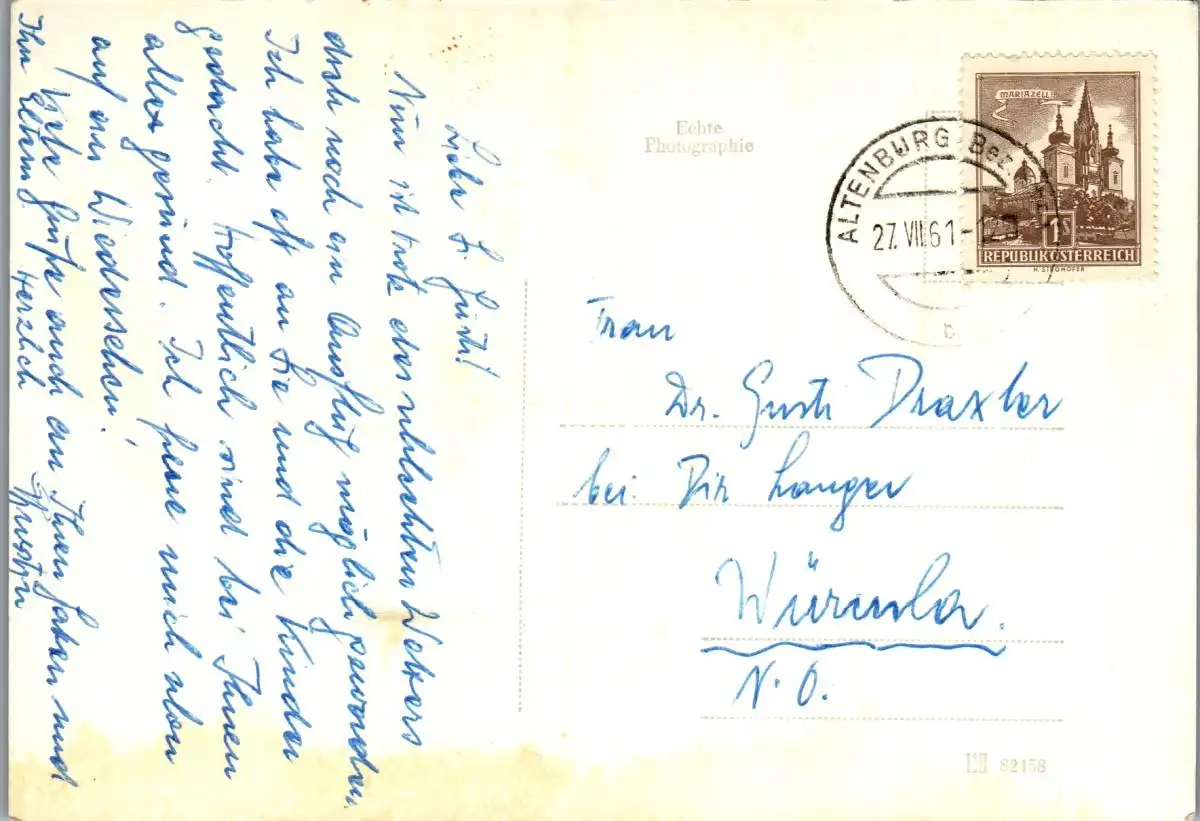 Liebe Fr. Gusti!
Nun ist trotz des schlechten Wetters
doch noch ein Ausflug möglich geworden.
Ich habe oft an Sie und die Kinder
gedacht. Hoffentlich sind bei Ihnen
alle gesund. Ich freue mich schon
auf ein Wiedersehen!
Viele Grüße auch an Ihren Gatten und
Ihre Eltern herzlich
Echte
Photographie
MARIAZELL
1S
REPUBLIK ÖSTERREICH
H. STROHOFER
ALTENBURG Bez.
27. VII. 61 - 12
b
Frau
Dr. Gusti Draxler
bei Dir Langer
Würmla.
N. Ö.
82158